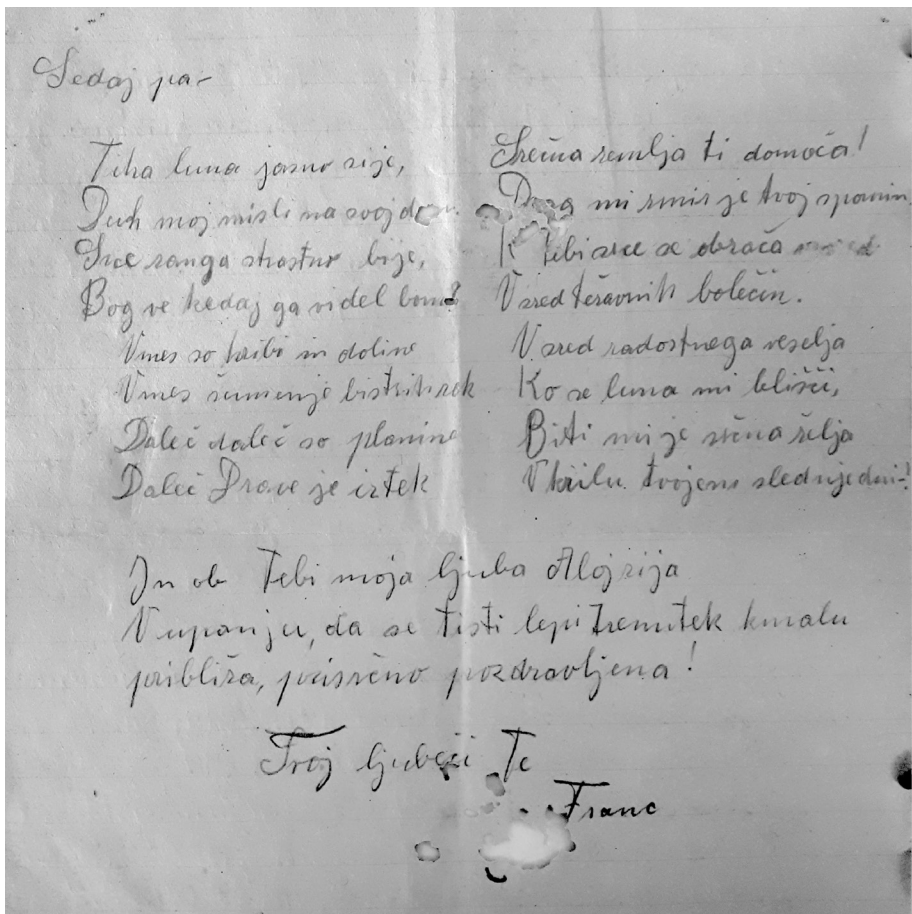 Sedaj pa-
Tiha luna jasno sije,
Duh moj misli na svoj
Srce zanga strastno bije,
Bog ve kedaj ga videl bom?
Vmes so hribi in doline
Vmes šumenje bistrih rek
Daleč daleč so planine
Daleč Drave je iztek
Srečna zemlja ti domača!
mi zmir je tvoj spomin
K tebi srce se obrača
V sred težavnih bolečin.
V sred radostnega veselja
Ko se luna mi blišči,
Biti mi je srčna želja
V krilu tvojem slednje dni-!
In ob Tebi moja ljuba Alojzija
V upanju, da se tisti lepi trenutek kmalu
približa, prisrčno pozdravljena!
Tvoj ljubeči Te
Franc